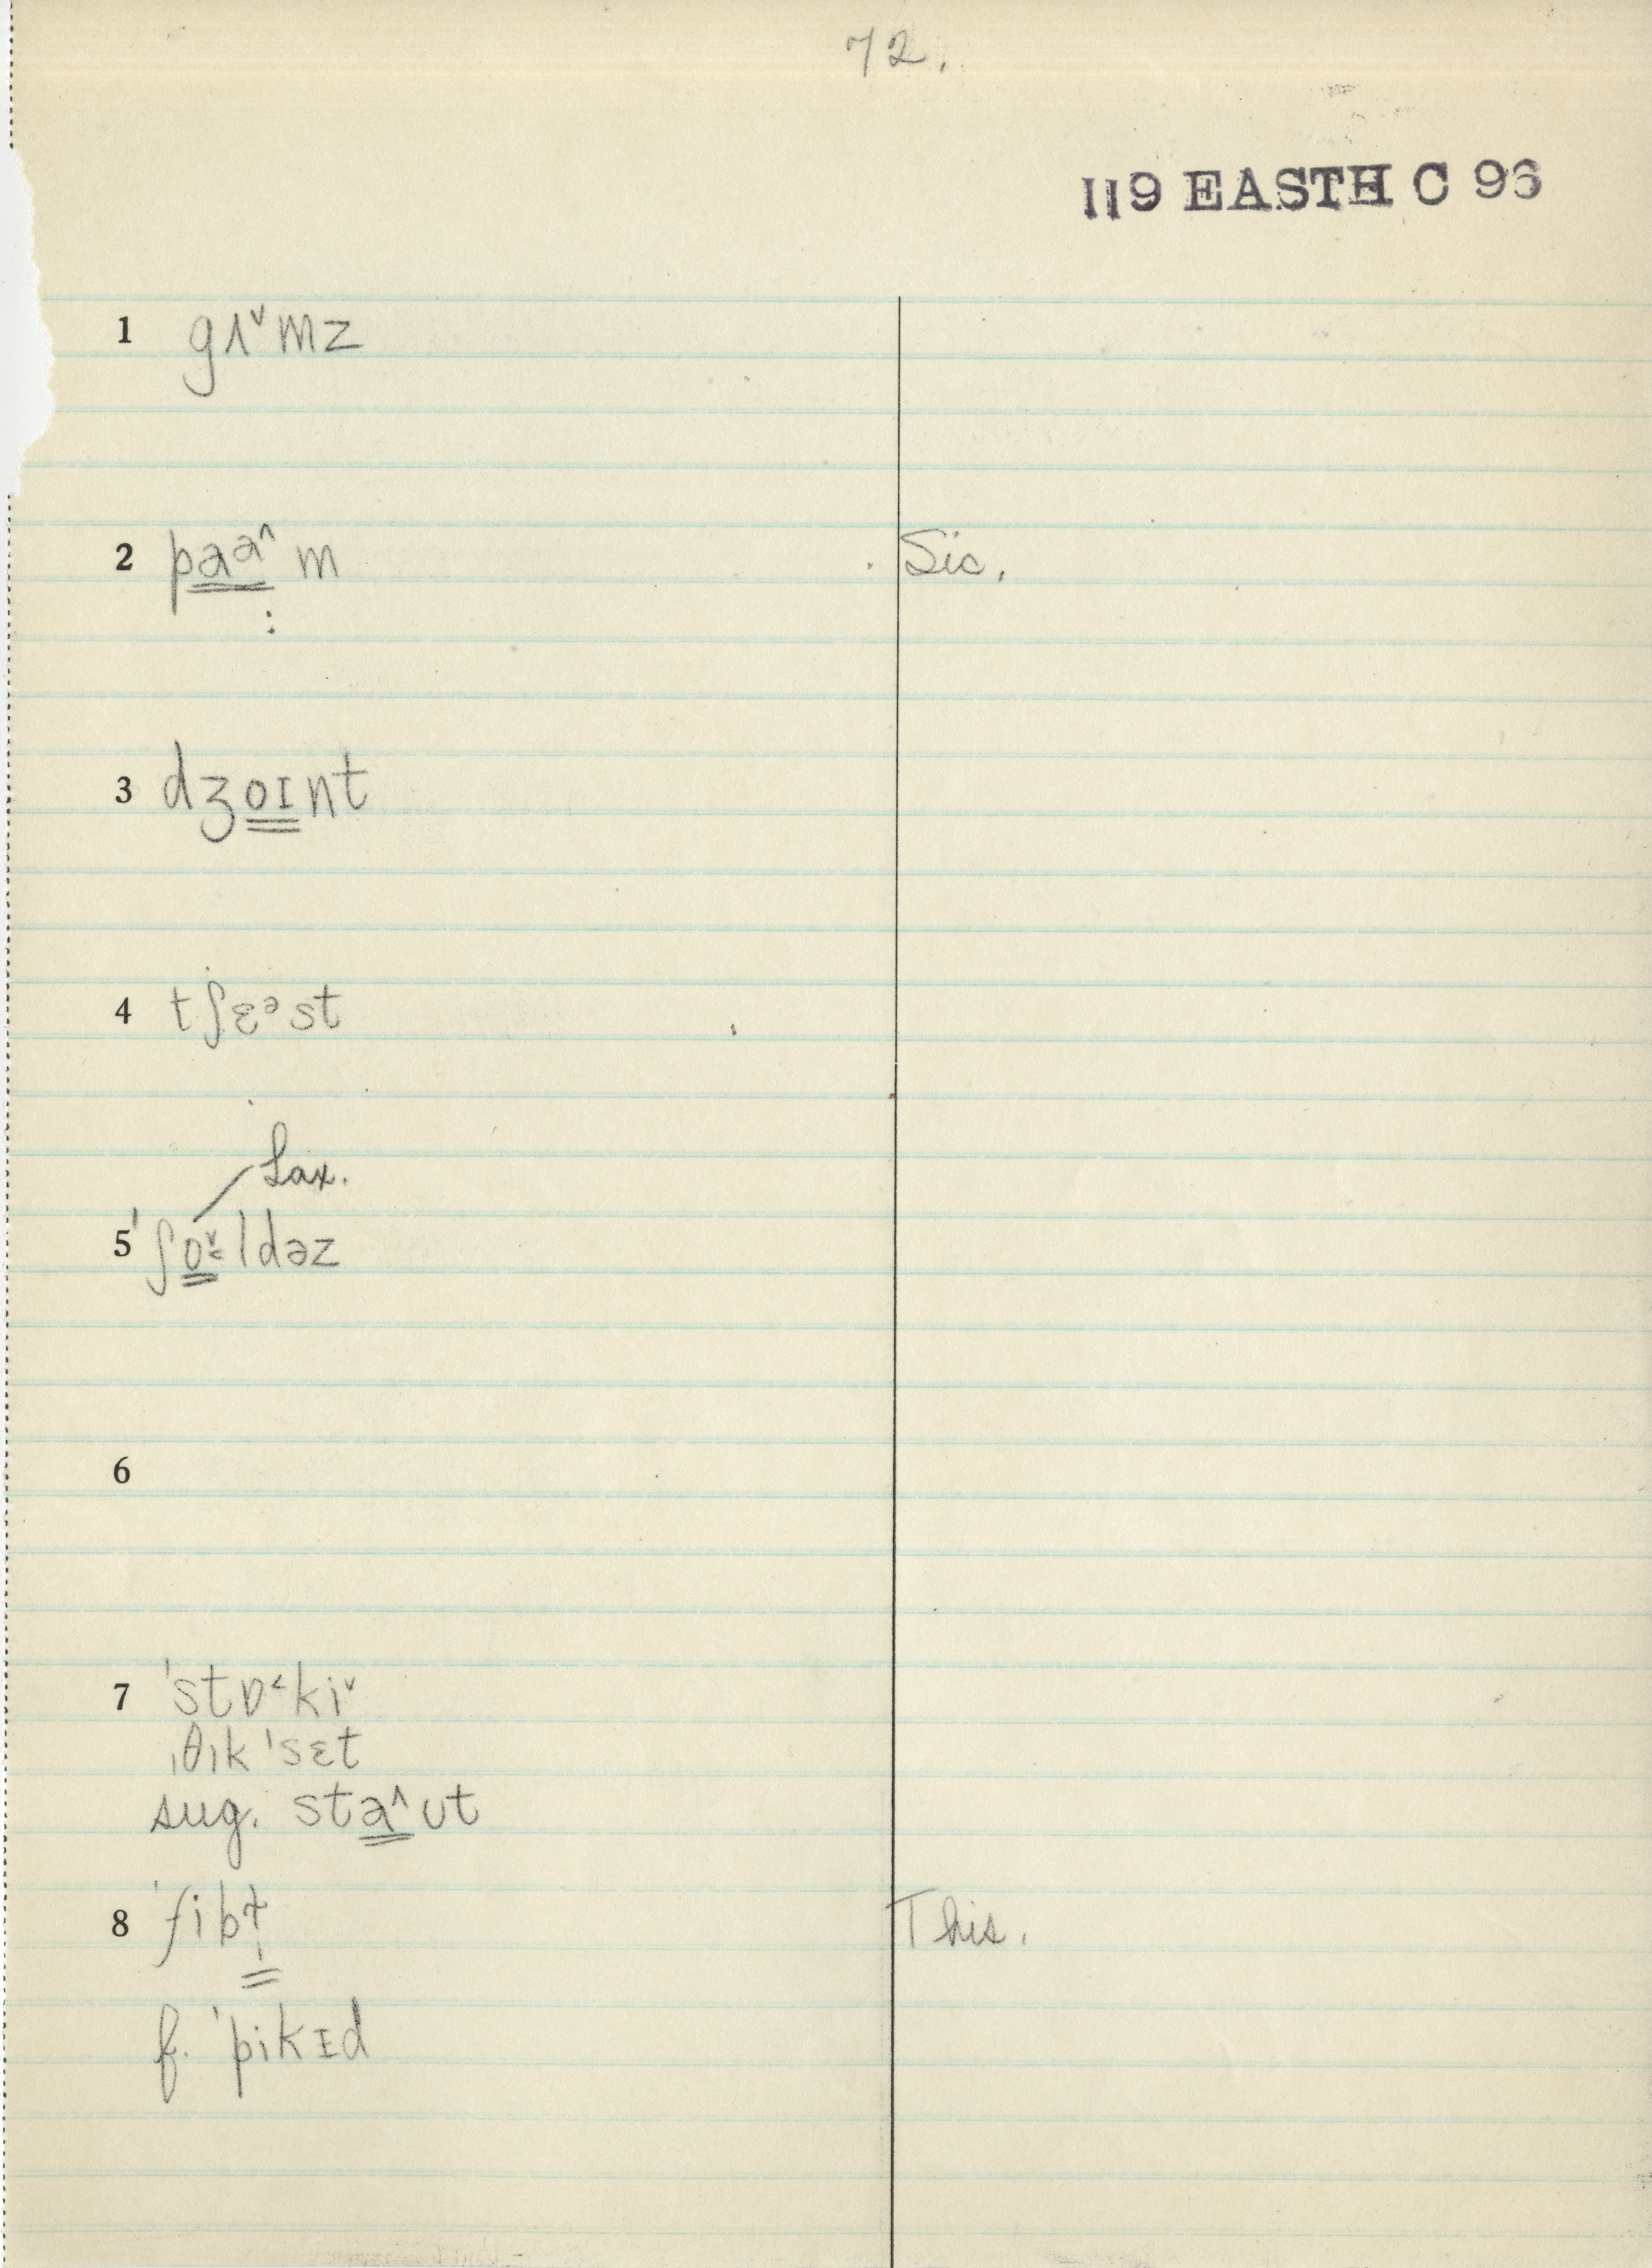 72.
119 EASTH C 96
1 gʌ˅mz
2 paa^m Sic.
3 dʒoɪnt
4 tʃɛᵊst
Lax.
5 'ʃo˅˂ldəz
6
7 'stɒ˂ki˅
ˌθɪk 'sɛt
sug. sta^ʊt
8 'fib This.
f. 'pikɪd